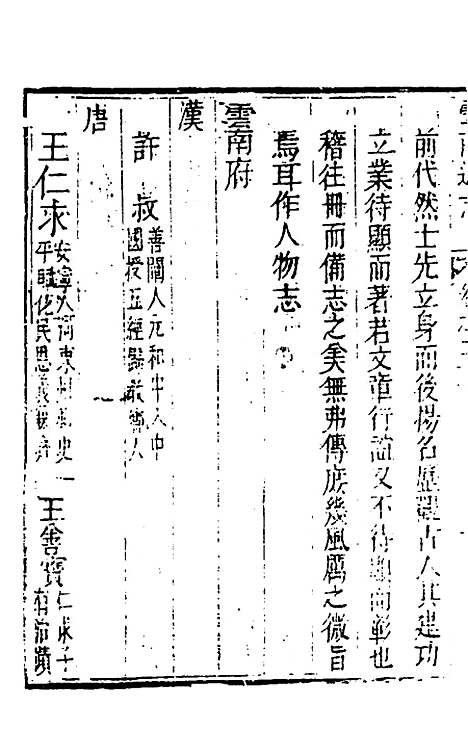 前代然士先立身而後揚名歷選古人其建功
立業待顯而著若文章行誼又不待顯而彰也
稽往冊而備志之矣無弗傳庶幾風厲之微旨
焉耳作人物志
雲南府
漢
許叔 善闡人元和中入中
國授五經歸教鄉人
唐
王仁求 安寧人河東州刺史
平賦化民恩義
王善寶 仁求子
有前